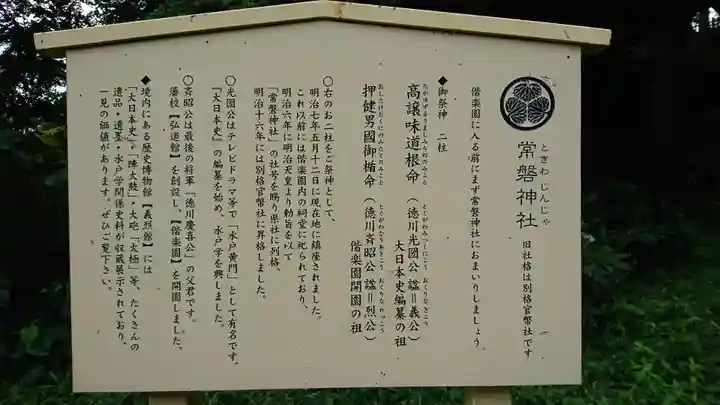 常磐神社
ときわじんじゃ
旧社格は別格官幣社です
偕楽園に入る前にまず常磐神社におまいりしましょう。
◆御祭神 二柱
高譲味道根命(徳川光圀公 諡=義公)
たかゆずるうましみちねのみこと とくがわみつくにこう おくりなぎこう
大日本史編纂の祖
押健男國御楯命(徳川斉昭公 諡=烈公)
おしたけおくにのみたてのみこと とくがわなりあきこう おくりなれっこう
偕楽園開園の祖
○右のお二柱をご祭神として、
明治七年五月十二日に現在地に鎮座されました。
これ以前には偕楽園内の祠堂に祀られており、
明治六年に明治天皇より勅旨を以て
「常磐神社」の社号を賜り県社に列格、
明治十六年には別格官幣社に昇格しました。
○光圀公はテレビドラマ等で「水戸黄門」として有名です。
『大日本史』の編纂を始め、水戸学を興しました。
○斉昭公は最後の将軍「徳川慶喜公」の父君です。
藩校【弘道館】を創設し、【偕楽園】を開園しました。
◆境内にある歴史博物館【義烈館】には
『大日本史』・『陣太鼓』・大砲『太極』等、たくさんの
遺品・遺墨・水戸学関係史料が収蔵展示されており、
一見の価値があります。ぜひご覧下さい。